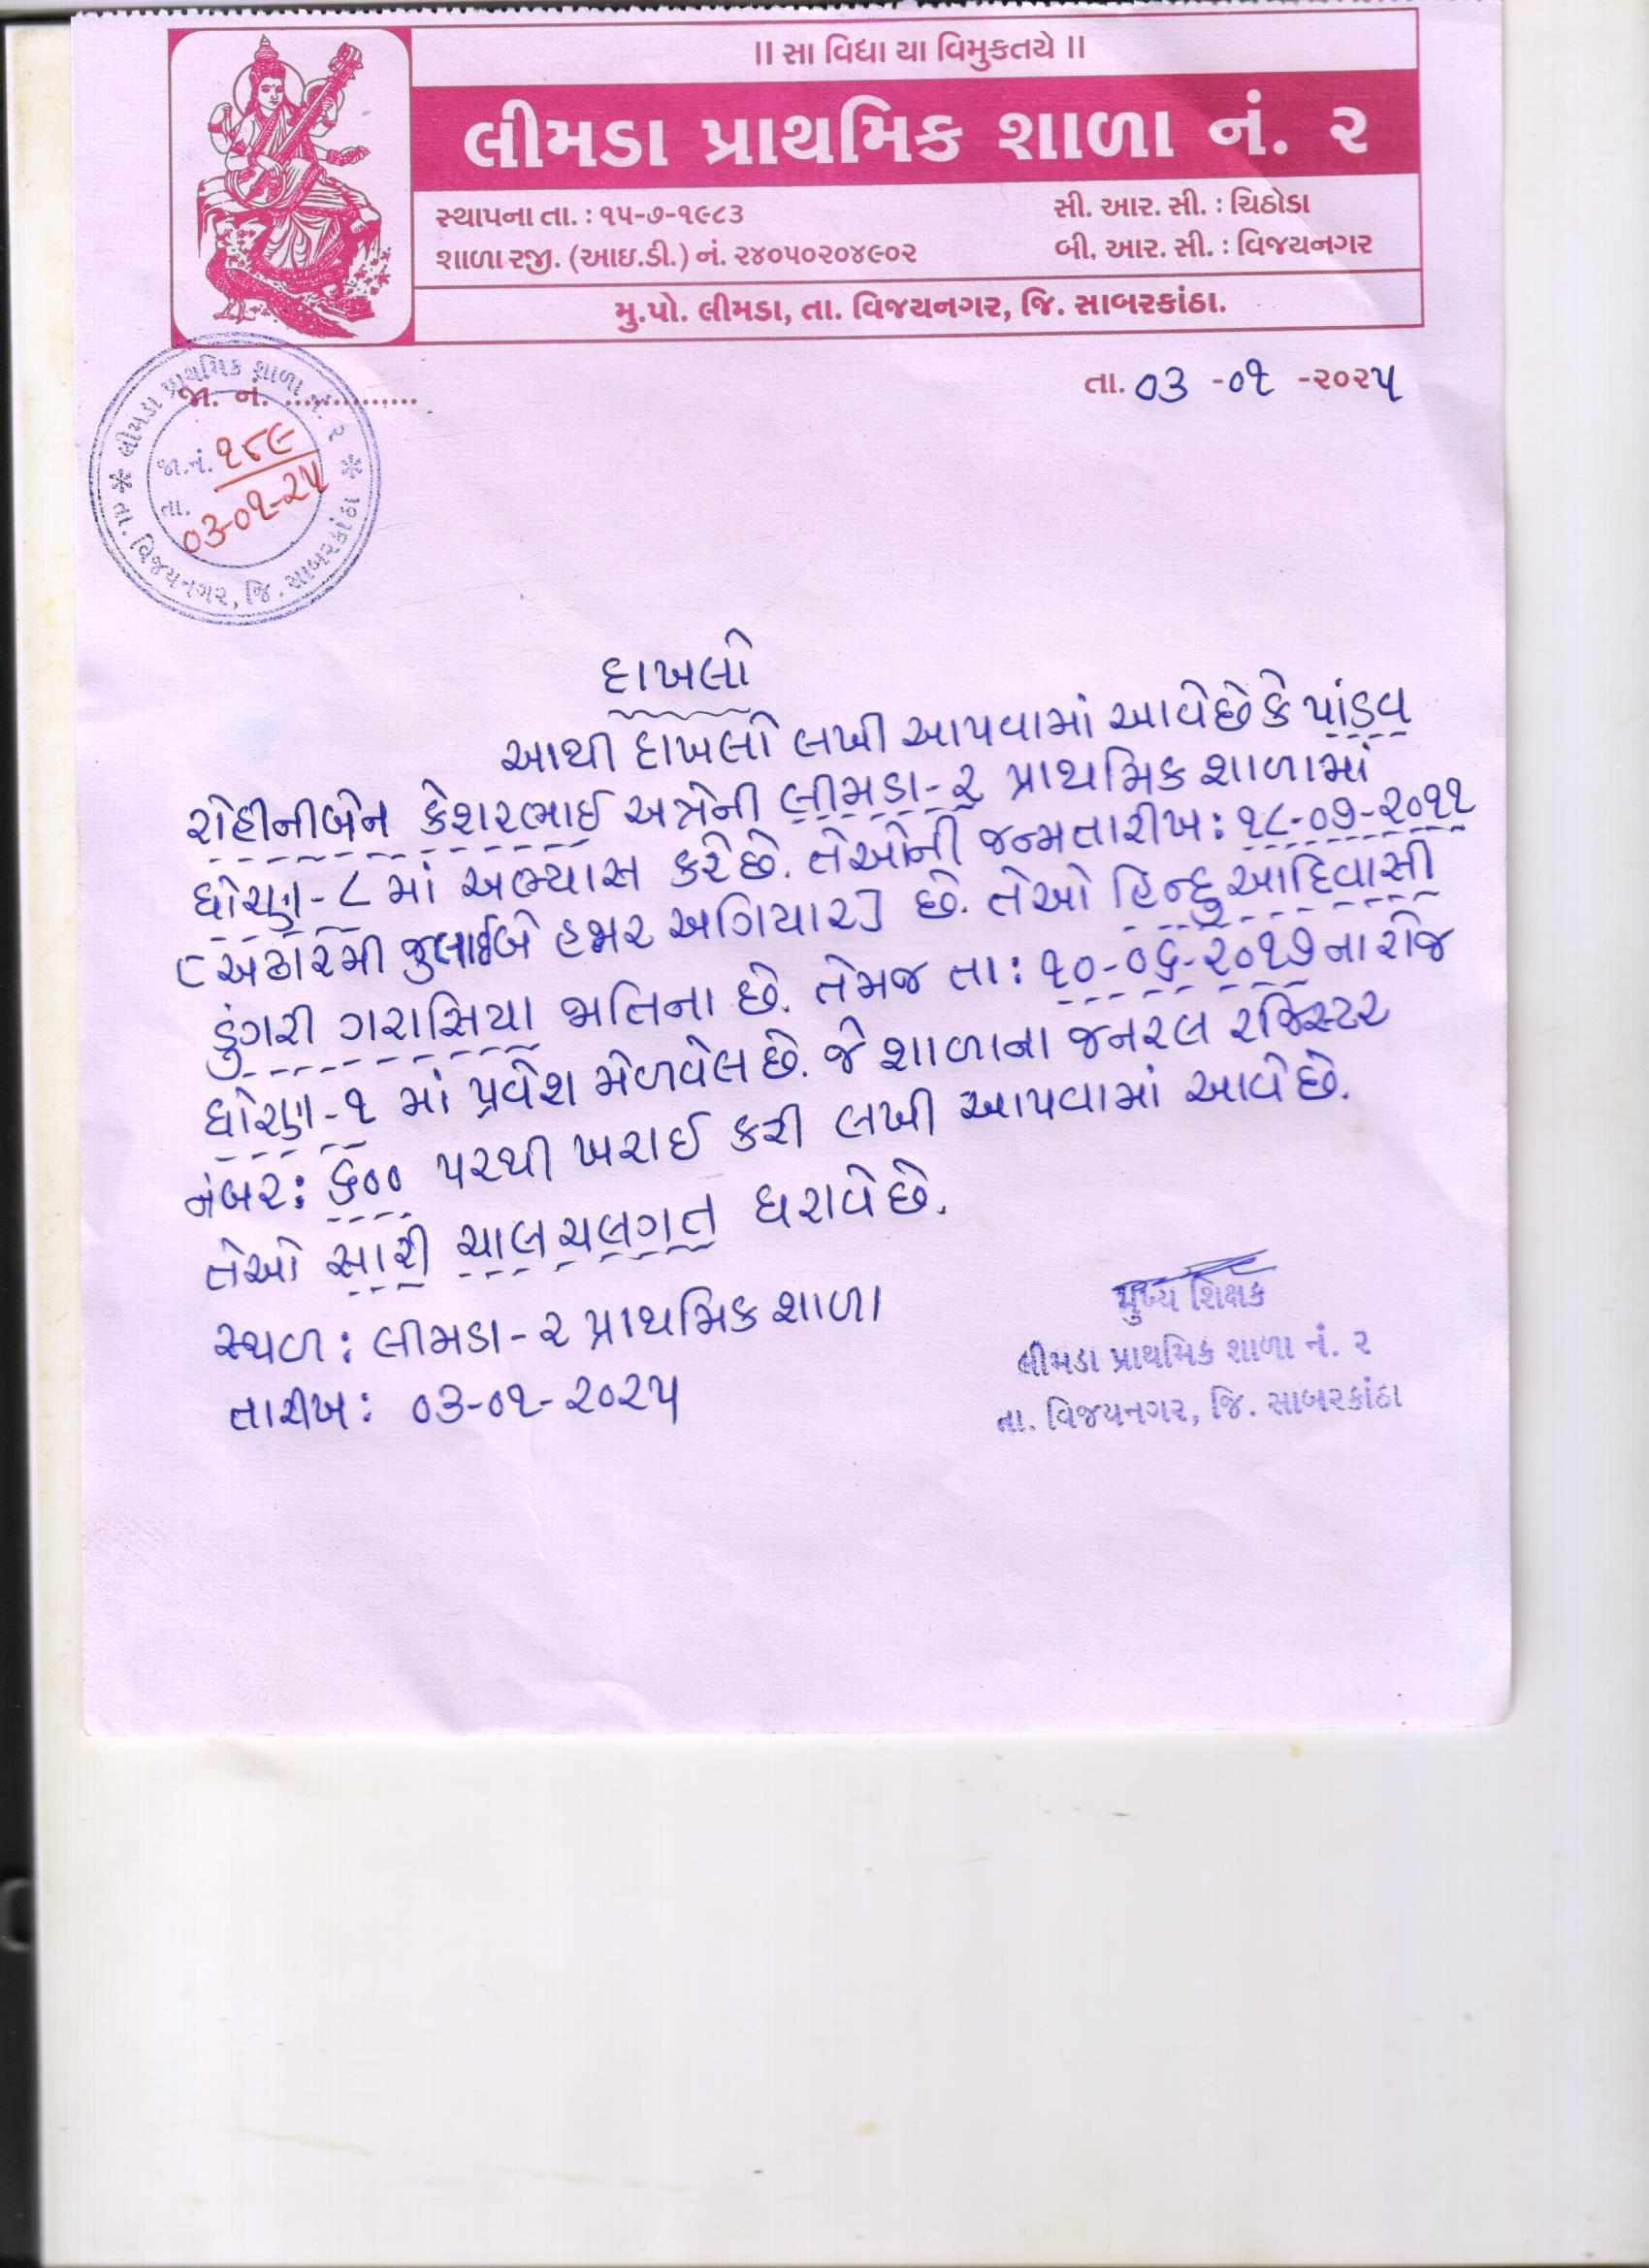 ॥ સા વિદ્યા યા વિમુકતયે ॥
લીમડા પ્રાથમિક શાળા નં. ૨
સ્થાપના તા. : ૧૫-૭-૧૯૮૩
સી. આર. સી. : ચિઠોડા
શાળા રજી. (આઇ.ડી.) નં. ૨૪૦૫૦૨૦૪૯૦૨
બી. આર. સી. : વિજયનગર
મુ.પો. લીમડા, તા. વિજયનગર, જિ. સાબરકાંઠા.
જા. નં. ..............
તા. ૦૩ -૦૧ -૨૦૨૫
લીમડા પ્રાથમિક શાળા નં. ૨
જા.નં. ૧૮૯
તા. ૦૩-૦૧-૨૫
તા. વિજયનગર, જિ. સાબરકાંઠા
દાખલો
આથી દાખલો લખી આપવામાં આવે છે કે પાંડવ
રોહીનીબેન કેશરભાઈ અત્રેની લીમડા-૨ પ્રાથમિક શાળામાં
ધોરણ-૮ માં અભ્યાસ કરે છે. તેઓની જન્મતારીખ: ૧૮-૦૭-૨૦૧૧
[અઢારમી જુલાઈ બે હજાર અગિયાર] છે. તેઓ હિન્દુ આદિવાસી
ડુંગરી ગરાસિયા જાતિના છે. તેમજ તા: ૧૦-૦૬-૨૦૧૭ ના રોજ
ધોરણ-૧ માં પ્રવેશ મેળવેલ છે. જે શાળાના જનરલ રજિસ્ટર
નંબર: ૬૦૦ પરથી ખરાઈ કરી લખી આપવામાં આવે છે.
તેઓ સારી ચાલચલગત ધરાવે છે.
સ્થળ: લીમડા-૨ પ્રાથમિક શાળા
તારીખ: ૦૩-૦૧-૨૦૨૫
મુખ્ય શિક્ષક
લીમડા પ્રાથમિક શાળા નં. ૨
તા. વિજયનગર, જિ. સાબરકાંઠા